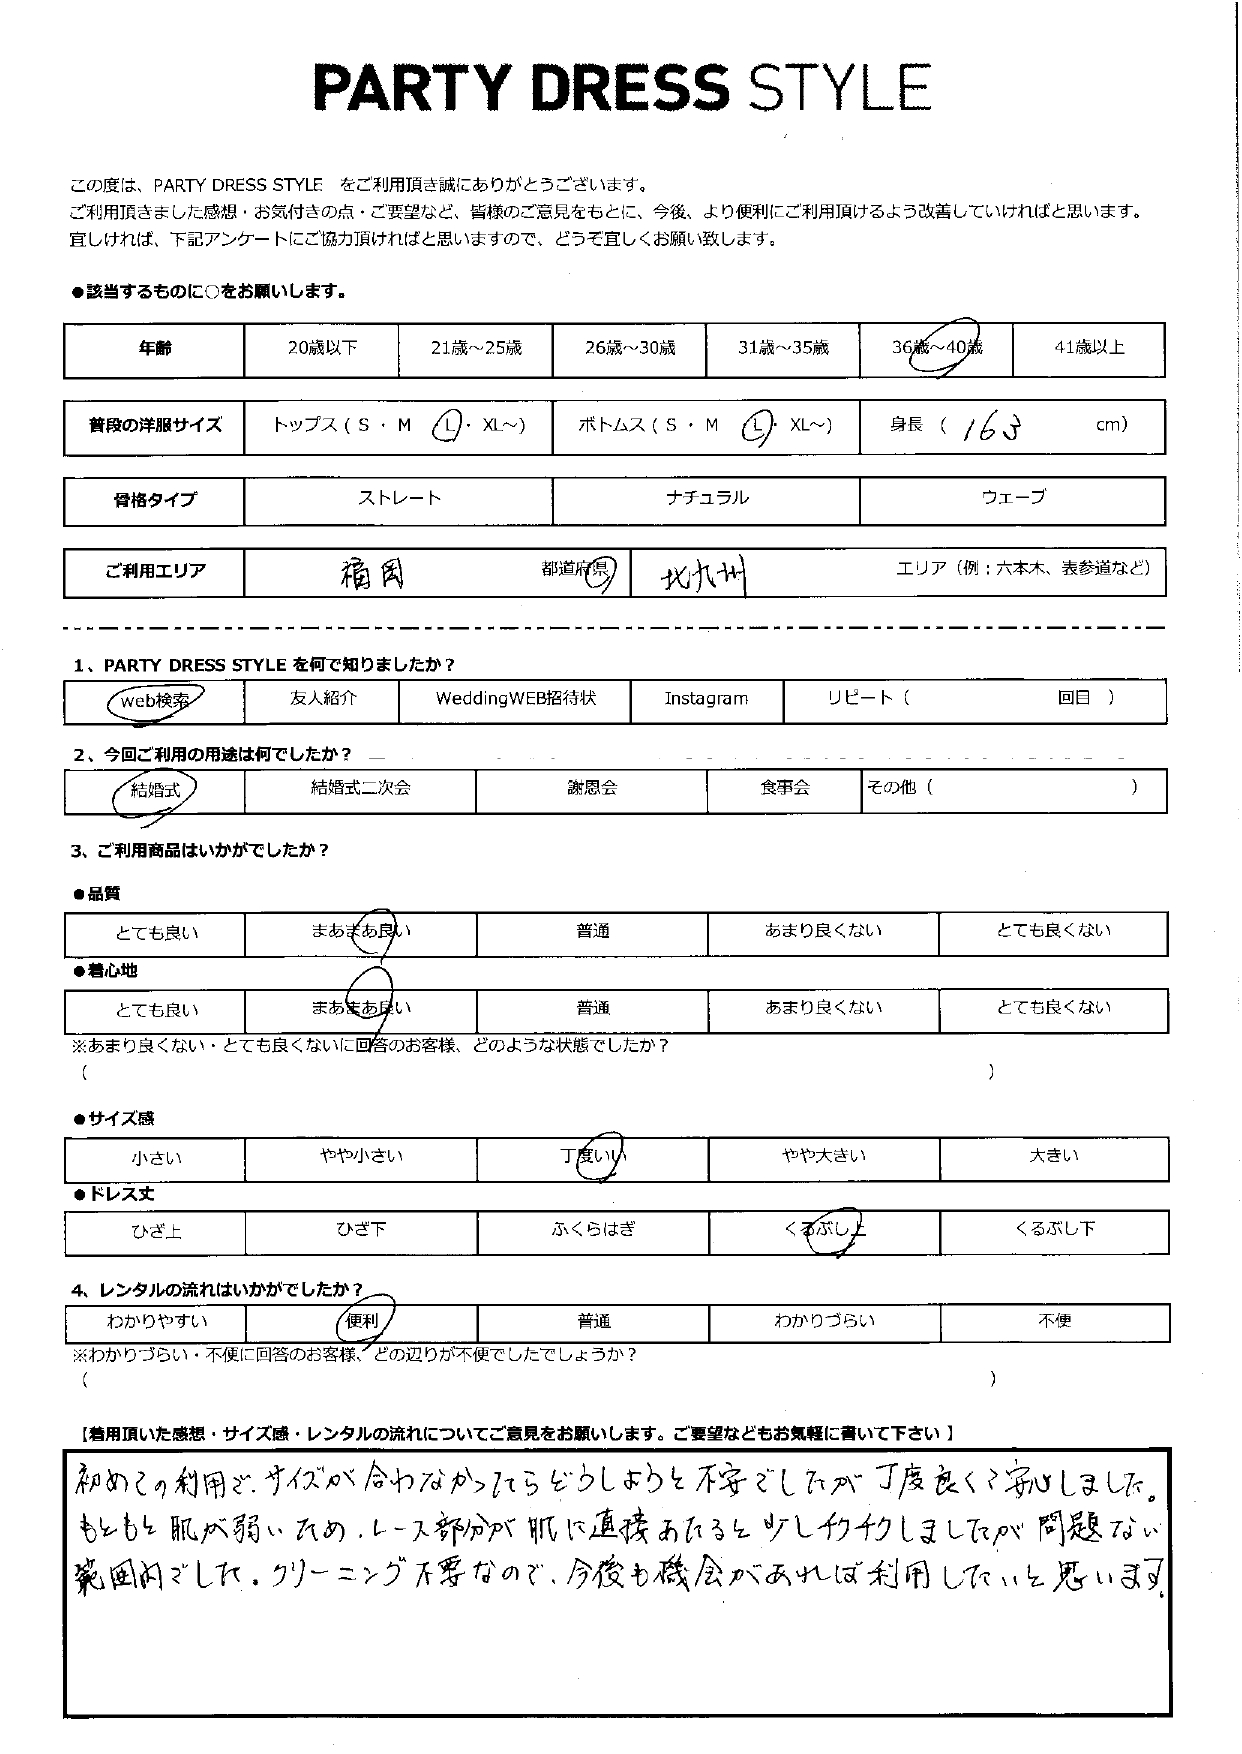 PARTY DRESS STYLE
この度は、PARTY DRESS STYLE をご利用頂き誠にありがとうございます。
ご利用頂きました感想・お気付きの点・ご要望など、皆様のご意見をもとに、今後、より便利にご利用頂けるよう改善していければと思います。
宜しければ、下記アンケートにご協力頂ければと思いますので、どうぞ宜しくお願い致します。
●該当するものに○をお願いします。
年齢 20歳以下 21歳～25歳 26歳～30歳 31歳～35歳 36歳～40歳 41歳以上
普段の洋服サイズ トップス ( S ・ M L ・ XL～) ボトムス ( S ・ M L ・ XL～) 身長 ( 163 cm)
骨格タイプ ストレート ナチュラル ウェーブ
ご利用エリア 福岡 都道府県 北九州 エリア（例：六本木、表参道など）
1、PARTY DRESS STYLE を何で知りましたか？
web検索 友人紹介 WeddingWEB招待状 Instagram リピート（ 回目 ）
2、今回ご利用の用途は何でしたか？
結婚式 結婚式二次会 謝恩会 食事会 その他（ ）
3、ご利用商品はいかがでしたか？
●品質
とても良い まあまあ良い 普通 あまり良くない とても良くない
●着心地
とても良い まあまあ良い 普通 あまり良くない とても良くない
※あまり良くない・とても良くないに回答のお客様、どのような状態でしたか？
（ ）
●サイズ感
小さい やや小さい 丁度いい やや大きい 大きい
●ドレス丈
ひざ上 ひざ下 ふくらはぎ くるぶし上 くるぶし下
4、レンタルの流れはいかがでしたか？
わかりやすい 便利 普通 わかりづらい 不便
※わかりづらい・不便に回答のお客様、どの辺りが不便でしたでしょうか？
（ ）
【着用頂いた感想・サイズ感・レンタルの流れについてご意見をお願いします。ご要望などもお気軽に書いて下さい 】
初めての利用で、サイズが合わなかったらどうしようと不安でしたが丁度良くて安心しました。
もともと肌が弱いため、レース部分が肌に直接あたると少しチクチクしましたが問題ない
範囲内でした。クリーニング不要なので、今後も機会があれば利用したいと思います。